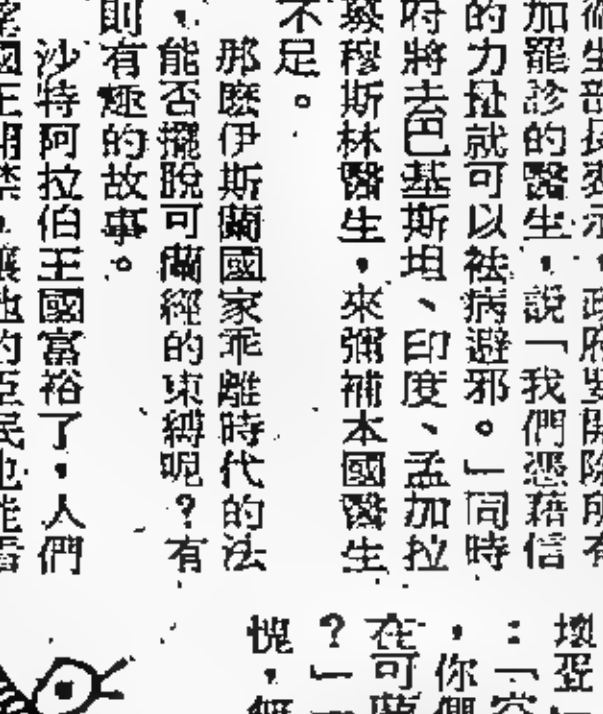 生部長表示，政府要開除所有
加罷診的醫生，說「我們憑藉信
的力量就可以袪病避邪。」同時
府將去巴基斯坦、印度、孟加拉
穆斯林醫生，來彌補本國醫生
不足。
那麼伊斯蘭國家乖離時代的法
，能否擺脫可蘭經的束縛呢？有
則有趣的故事。
沙特阿拉伯王國富裕了，人們
國王開禁，讓他的臣民也能看
壞蛋
：「
，你們
在可蘭
？」
愧，